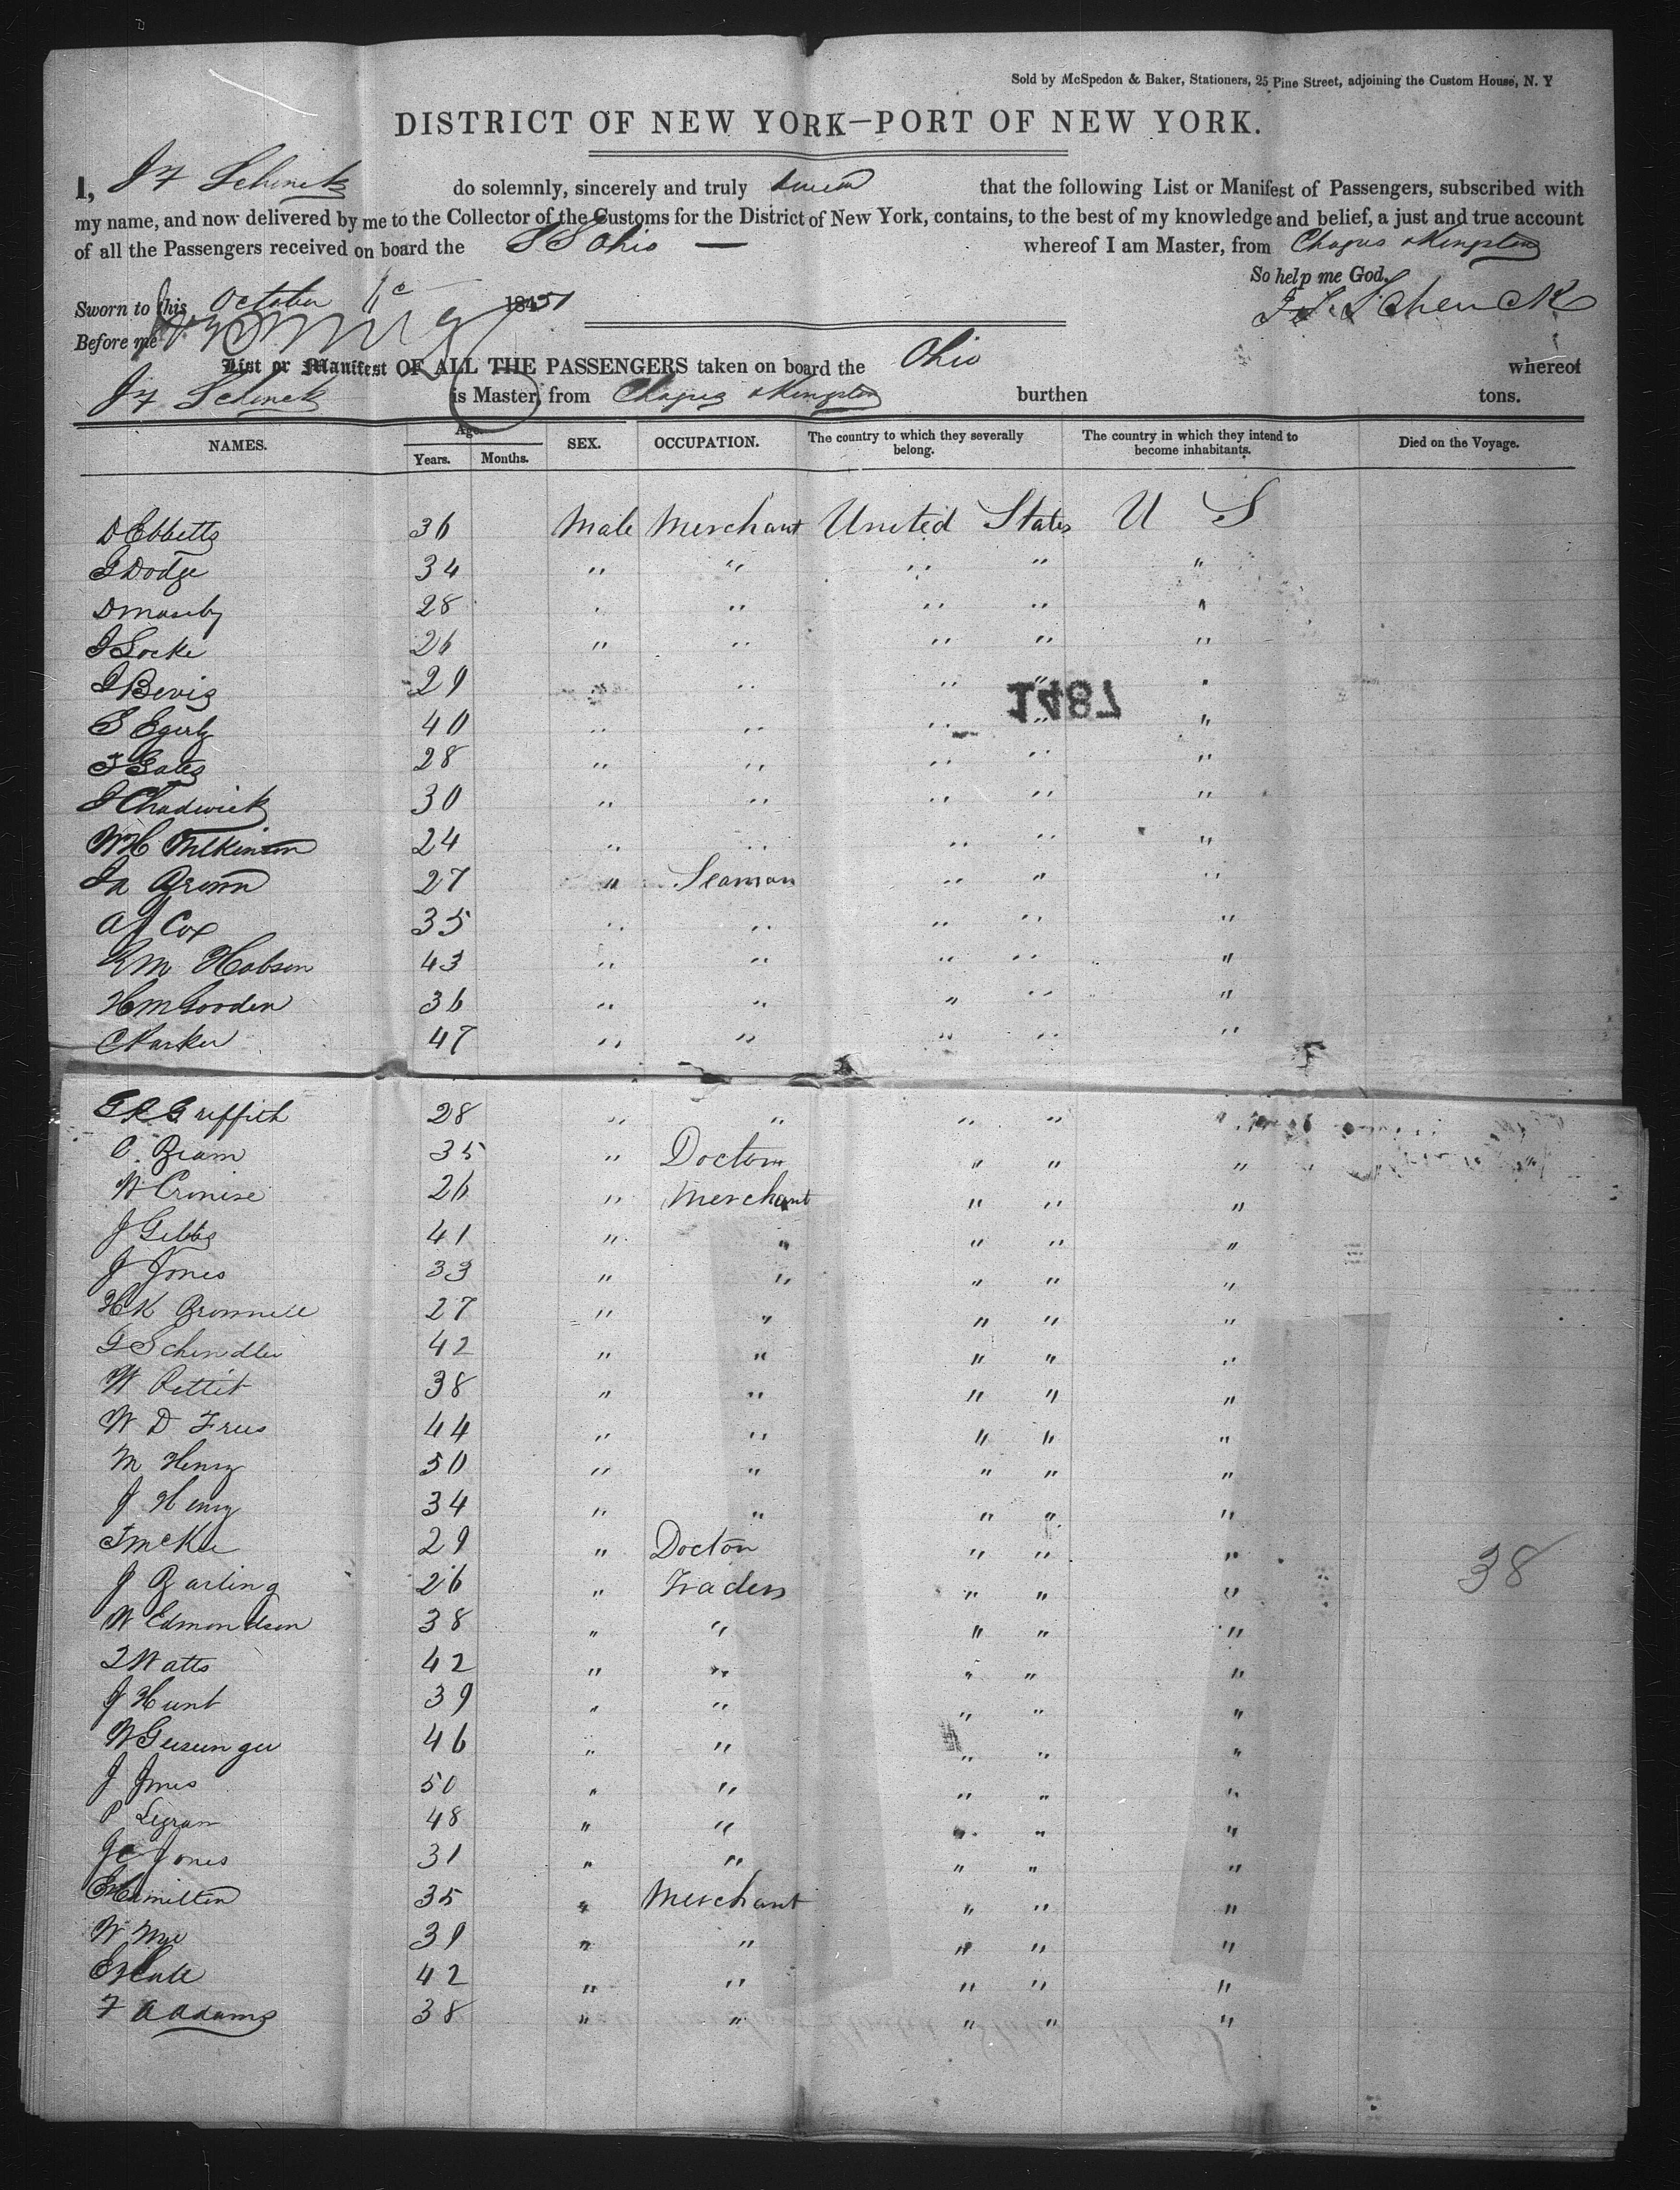 Sold by McSpedon & Baker, Stationers, 25 Pine Street, adjoining the Custom House, N. Y
DISTRICT OF NEW YORK—PORT OF NEW YORK.
I, Schenck do solemnly, sincerely and truly swear that the following List or Manifest of Passengers, subscribed with
my name, and now delivered by me to the Collector of the Customs for the District of New York, contains, to the best of my knowledge and belief, a just and true account
of all the Passengers received on board the SS Ohio — whereof I am Master, from Chagres & Kingston
So help me God.
Sworn to this October 1851
Schenck
Before me
List or Manifest OF ALL THE PASSENGERS taken on board the Ohio whereof
Schenck is Master, from Chagres & Kingston burthen tons.
NAMES. Age. Years. Months. SEX. OCCUPATION. The country to which they severally belong. The country in which they intend to become inhabitants. Died on the Voyage.
D Ebbetts 36 Male Merchant United States U S
J Dodge 34 " " " " "
D Mosely 28 " " " " "
J Locke 26 " " " " "
J Bevis 29 " " " " "
1487
S Egerly 40 " " " " "
F Gates 28 " " " " "
J Chadwick 30 " " " " "
W H Wilkinson 24 " " " " "
Brown 27 " Seaman " " "
A J Cox 35 " " " " "
R M Hobson 43 " " " " "
H M Gooden 36 " " " " "
C Parker 47 " " " " "
G R Griffith 28 " " " " "
O. Beam 35 " Doctor " " "
W Cronise 26 " Merchant " " "
J Gibbs 41 " " " " "
J Jones 33 " " " " "
H K Brownell 27 " " " " "
G Schindler 42 " " " " "
W Pettit 38 " " " " "
W D Frees 44 " " " " "
M Henry 50 " " " " "
J Henry 34 " " " " "
J McKee 29 " Doctor " " "
J Barling 26 " Traders " " " 38
W Edmondson 38 " " " " "
Watts 42 " " " " "
J Hunt 39 " " " " "
W 46 " " " " "
J Jones 50 " " " " "
P Legram 48 " " " " "
Jones 31 " " " " "
Hamilton 35 " Merchant " " "
W Nye 39 " " " " "
E Hale 42 " " " " "
F A Adams 38 " " " " "